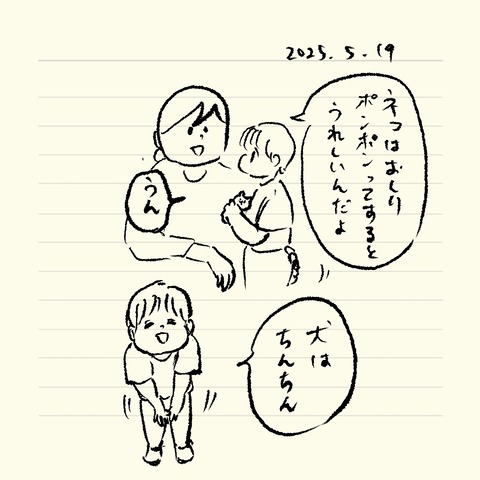 2025.5.19
ネコはおしり
ポンポンってすると
うれしいんだよ
うん
犬は
ちんちん